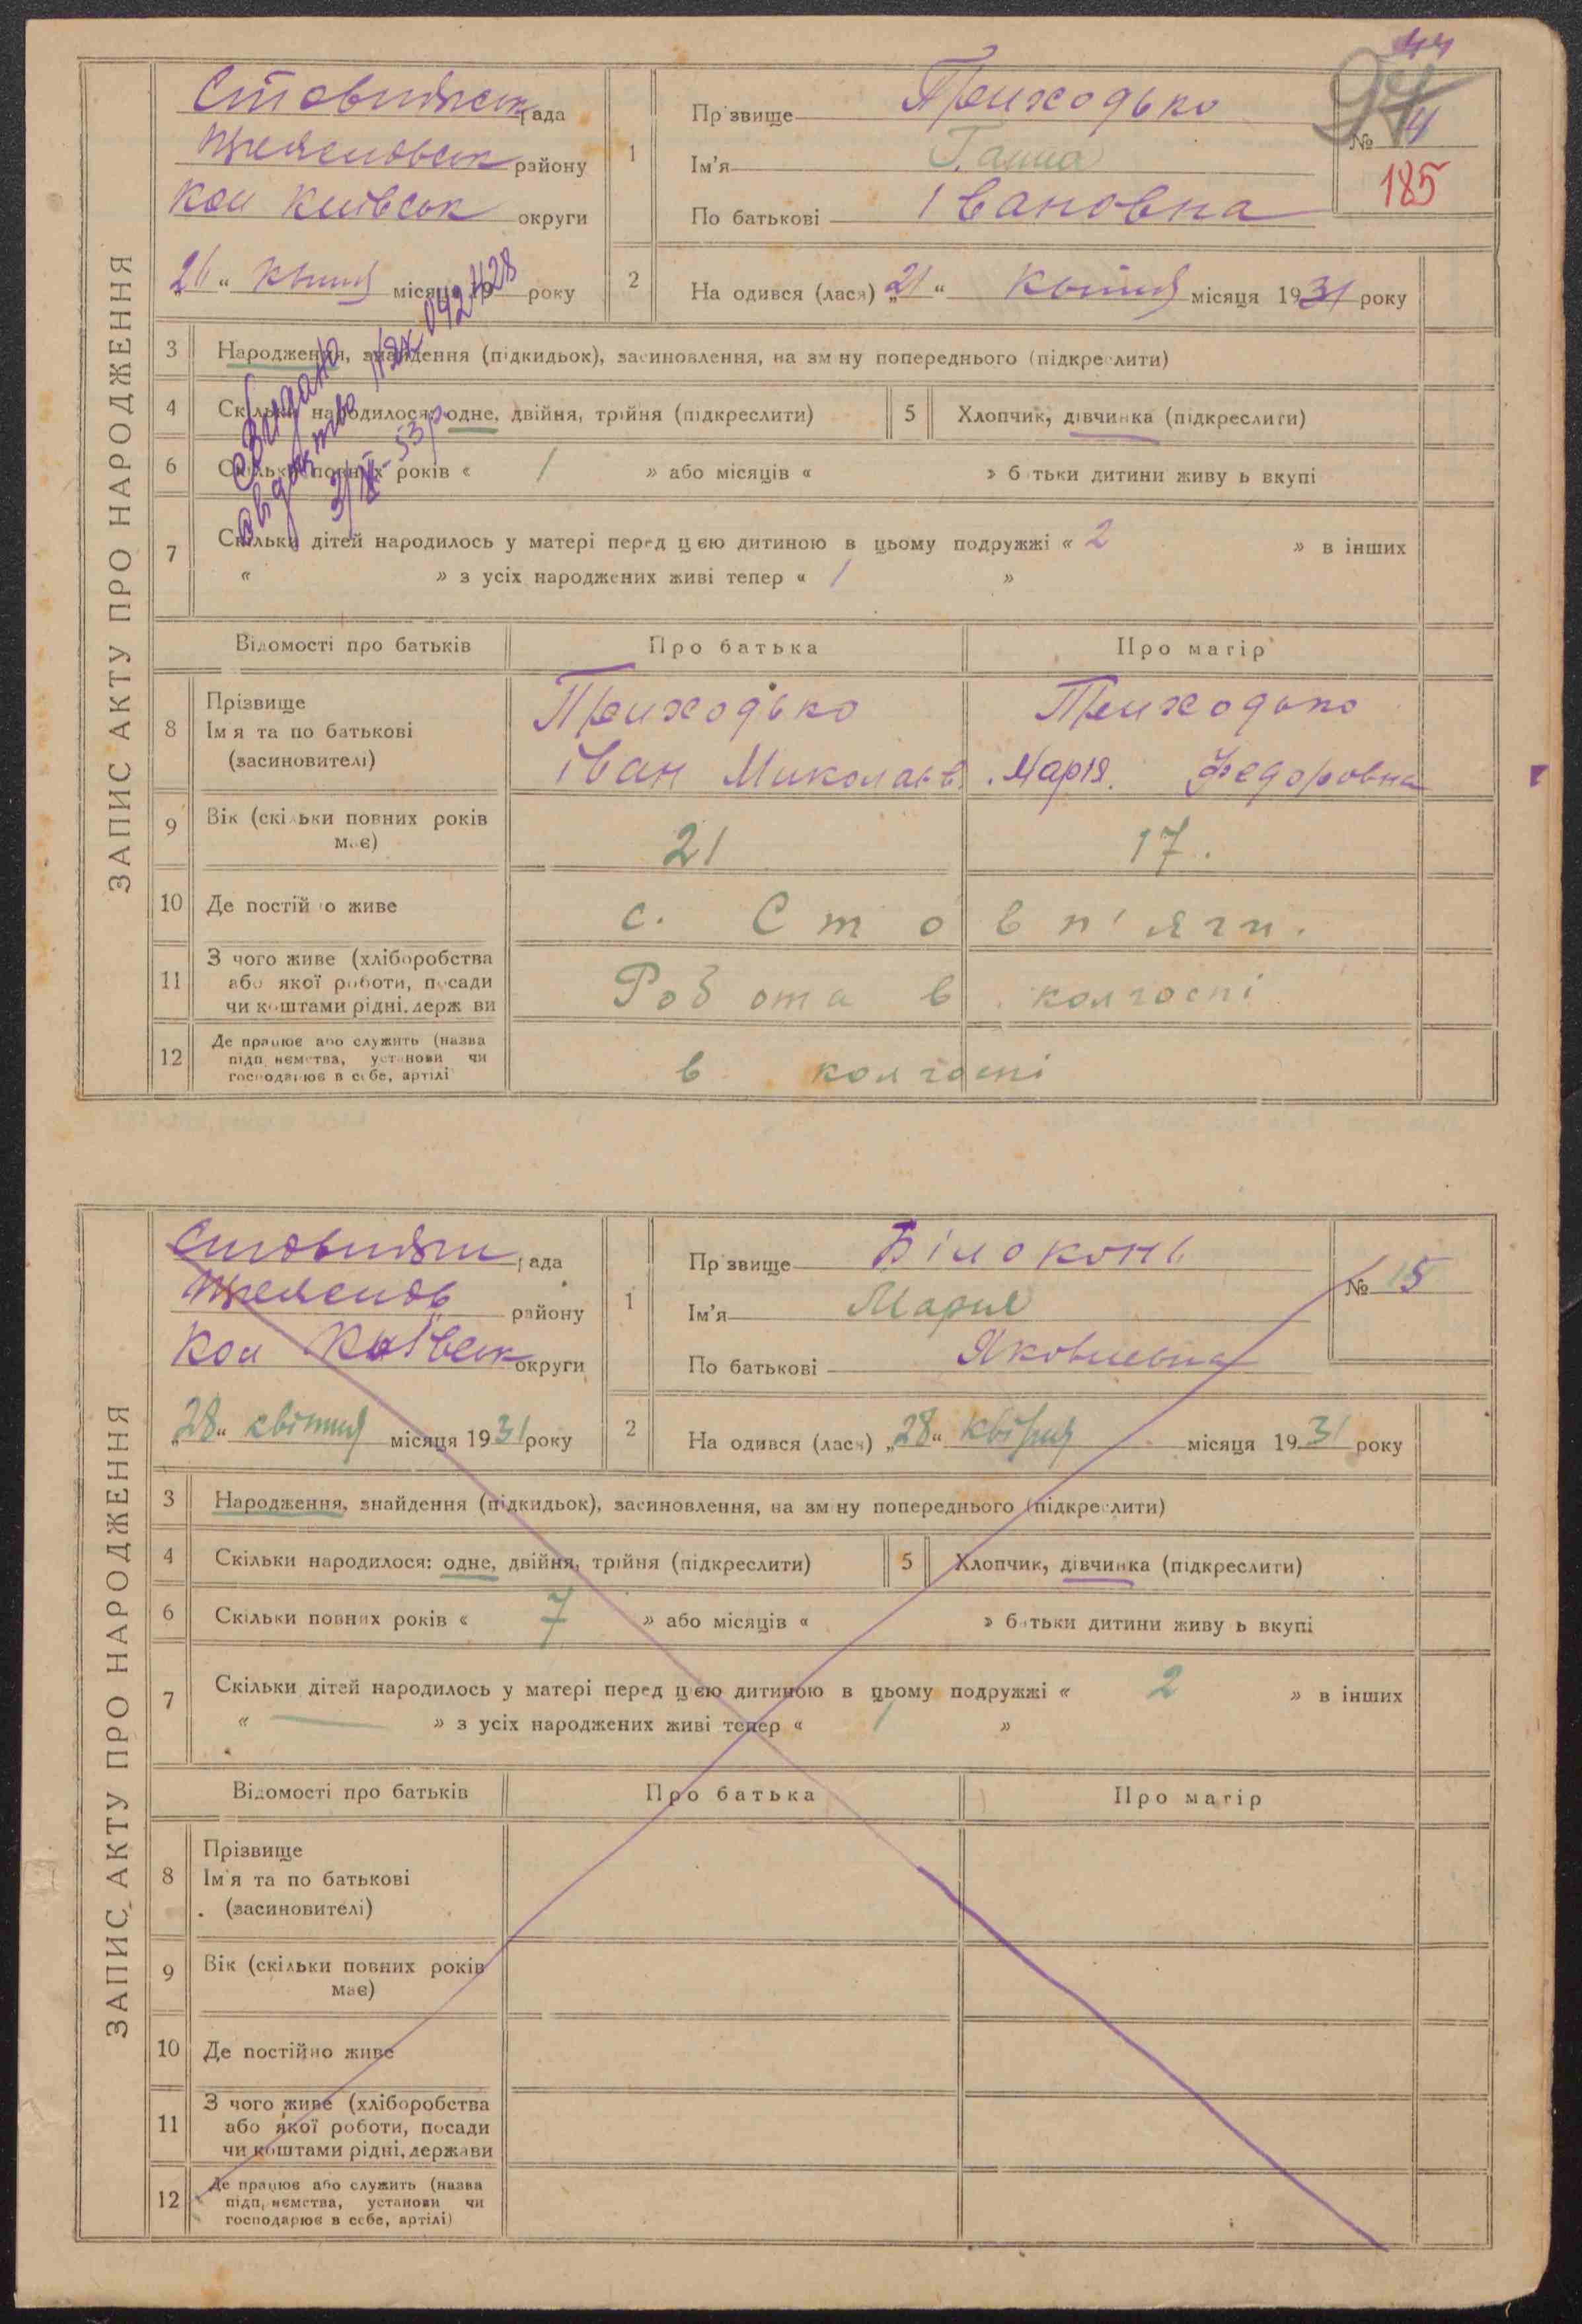 44
ЗАПИС АКТУ ПРО НАРОДЖЕННЯ
рада
району
Кол Київськ округи
21 " місяця 19 року
1
Прізвище Приходько
Ім'я Ганна
По батькові Івановна
№ 14
185
2
На одився (лася) „21" місяця 1931 року
3 Народження, знайдення (підкидьок), засиновлення, на зміну попереднього (підкреслити)
4 Скільки народилося: одне, двійня, трійня (підкреслити)
5 Хлопчик, дівчинка (підкреслити)
6 Скільки повних років « 1 » або місяців « » батьки дитини живуть вкупі
7 Скільки дітей народилось у матері перед цею дитиною в цьому подружжі « 2 » в інших
« » з усіх народжених живі тепер « 1 »
Видано
3/X-53р
Відомості про батьків
Про батька
Про матір
8 Прізвище
Ім'я та по батькові
(засиновителі)
Приходько
Іван Миколаєв
Приходько
Марія Федоровна
9 Вік (скільки повних років має)
21
17.
10 Де постійно живе
с. Стовп'яги.
11 З чого живе (хліборобства
або якої роботи, посади
чи коштами рідні, держави
Робота в колгоспі
12 Де працює або служить (назва
підприємства, установи чи
господарює в себе, артілі
в колгоспі
ЗАПИС АКТУ ПРО НАРОДЖЕННЯ
рада
району
Кол Київськ округи
„28" квітня місяця 1931 року
1
Прізвище Білоконь
Ім'я Мария
По батькові Яковлевна
№ 15
2
На одився (лася) „28" квітня місяця 1931 року
3 Народження, знайдення (підкидьок), засиновлення, на зміну попереднього (підкреслити)
4 Скільки народилося: одне, двійня, трійня (підкреслити)
5 Хлопчик, дівчинка (підкреслити)
6 Скільки повних років « 7 » або місяців « » батьки дитини живуть вкупі
7 Скільки дітей народилось у матері перед цею дитиною в цьому подружжі « 2 » в інших
« — » з усіх народжених живі тепер « 1 »
Відомості про батьків
Про батька
Про матір
8 Прізвище
Ім'я та по батькові
(засиновителі)
9 Вік (скільки повних років
має)
10 Де постійно живе
11 З чого живе (хліборобства
або якої роботи, посади
чи коштами рідні, держави
12 Де працює або служить (назва
підприємства, установи чи
господарює в себе, артілі)